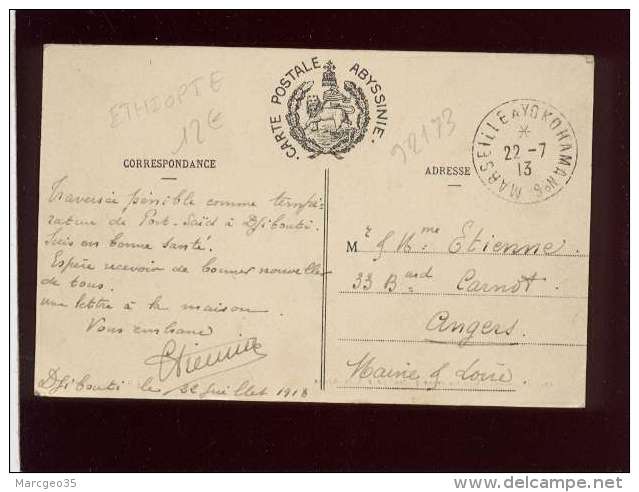 ETHIOPIE
12€
CARTE POSTALE ABYSSINIE.
92173
MARSEILLE A YOKOHAMA Nº 8
22 -7
13
CORRESPONDANCE
ADRESSE
Traversée pénible comme tempé-
rature de Port-Saïd à Djibouti.
Suis en bonne santé.
Espère recevoir de bonnes nouvelles
de tous.
une lettre à la maison.
Vous embrasse
Etienne
Djibouti le 22 juillet 1913
Mr & Mme Etienne.
33 Bard Carnot.
Angers.
Maine & Loire.
Marcgeo35
delcampe.net